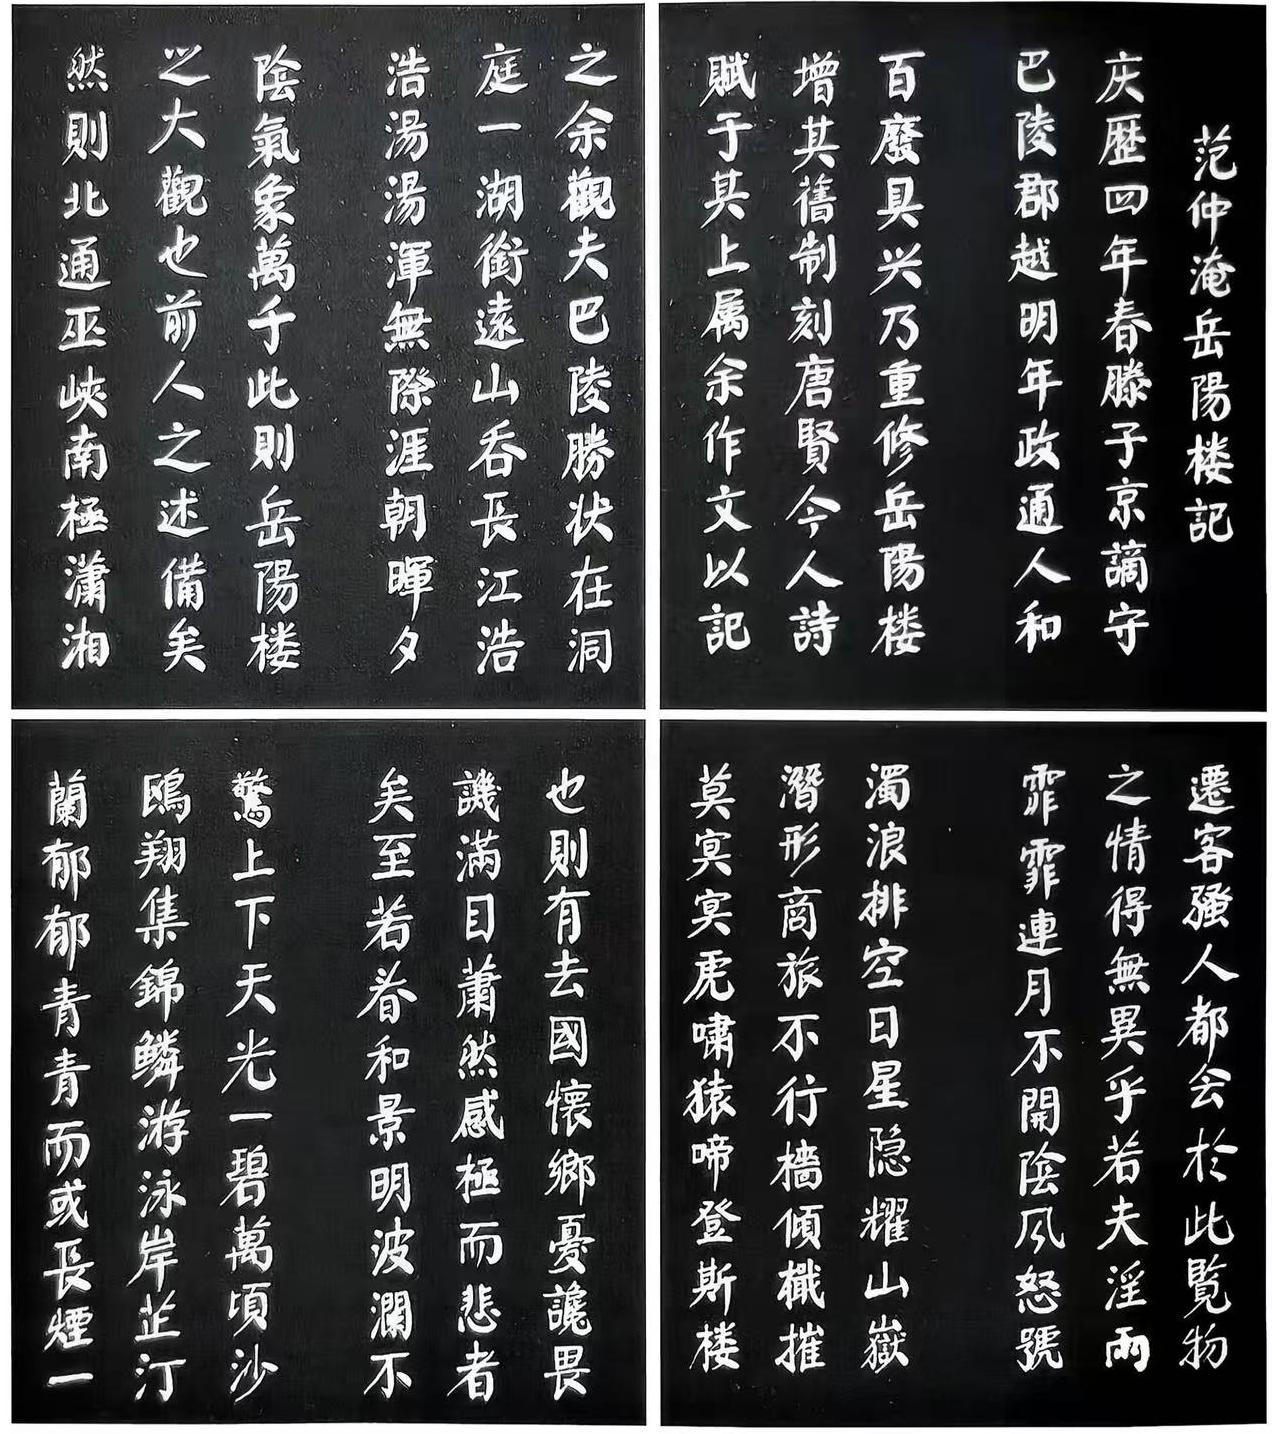 范仲淹岳陽楼記
庆歷四年春滕子京謫守
巴陵郡越明年政通人和
百廢具兴乃重修岳陽楼
增其舊制刻唐賢今人詩
賦于其上属余作文以記
之余觀夫巴陵勝状在洞
庭一湖銜遠山吞長江浩
浩湯湯渾無際涯朝暉夕
陰氣象萬千此則岳陽楼
之大觀也前人之述備矣
然則北通巫峽南極瀟湘
遷客騷人都会於此覧物
之情得無異乎若夫淫雨
霏霏連月不開陰风怒號
濁浪排空日星隐耀山嶽
潛形商旅不行檣傾檝摧
莫冥冥虎嘯猿啼登斯楼
也則有去國懷鄉憂讒畏
譏滿目蕭然感極而悲者
矣至若春和景明波瀾不
驚上下天光一碧萬頃沙
鷗翔集錦鳞游泳岸芷汀
蘭郁郁青青而或長煙一